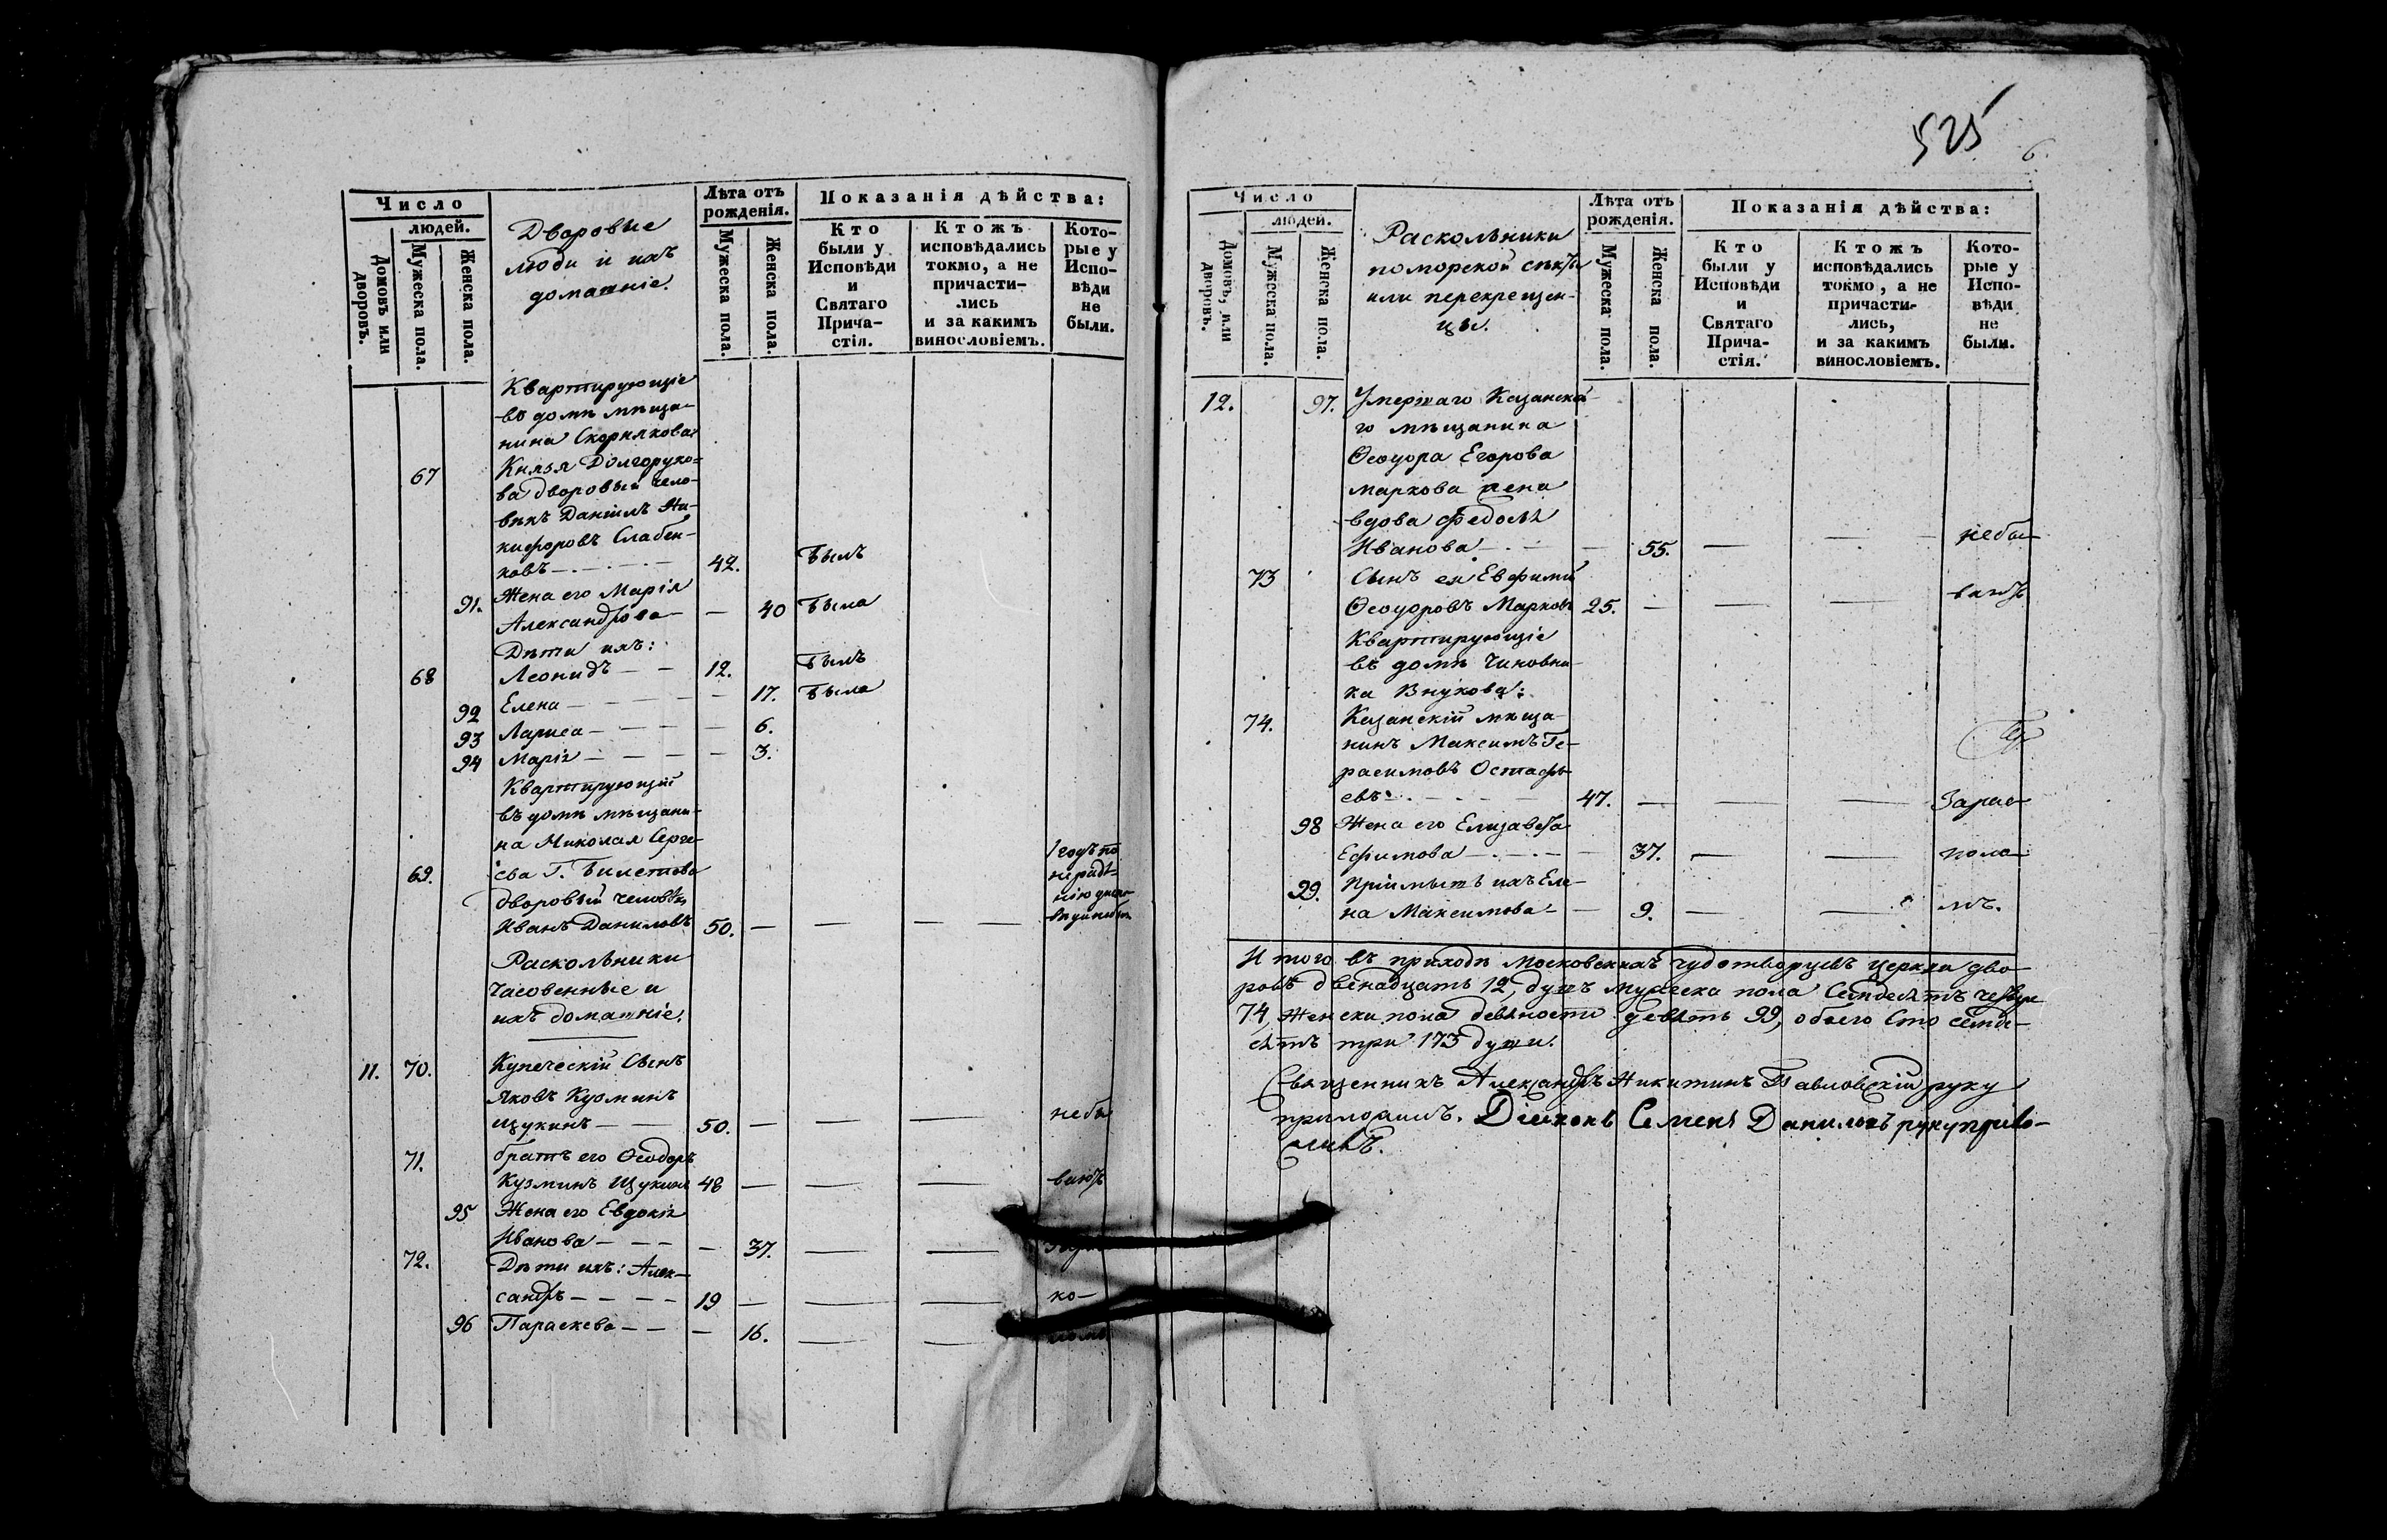 Число
людей.
Домовъ или дворовъ.
Мужеска пола.
Женска пола.
Дворовые
люди и ихъ
домашніе.
Лѣта отъ
рожденія.
Мужеска пола.
Женска пола.
Показанія дѣйства:
Кто
были у
Исповѣди
и
Святаго
Прича-
стія.
Ктожъ
исповѣдались
токмо, а не
причасти-
лись
и за какимъ
винословіемъ.
Кото-
рые у
Испо-
вѣди
не
были.
Квартирующіе
въ домѣ мѣща-
нина Скорнякова
67 Князя Долгоруко-
ва дворовый чело-
вѣкъ Даніилъ Ни-
кифоровъ Слабен-
ковъ 42. былъ
91. Жена его Марія
Александрова — 40 была
Дѣти ихъ:
68 Леонидъ — 12. былъ
92 Елена — 17. была
93 Лариса — 6.
94 Марія — 3.
Квартирующій
въ домѣ мѣщани-
на Николая Серге-
69. ева Г. Билетова
дворовый человѣкъ
Иванъ Даниловъ 50. — — —
1 годъ по
нерадѣ-
нію
Раскольники
часовенные и
ихъ домашніе.
11. 70. Купеческій Сынъ
Яковъ Кузминъ
Щукинъ — 50. — — — не бы
71. братъ его Ѳеодоръ
Кузминъ Щукинъ 48 — — — ваютъ
95 Жена его Евдокія
Иванова — — 37. — —
72. Дѣти ихъ: Алек-
сандръ — 19 — — — ко-
96 Параскева — — 16. — —
525
6.
Число
людей.
Домовъ, или дворовъ.
Мужеска пола.
Женска пола.
Раскольники
поморской секты
или перекрещен-
цы.
Лѣта отъ
рожденія.
Мужеска пола.
Женска пола.
Показанія дѣйства:
Кто
были у
Исповѣди
и
Святаго
Прича-
стія.
Ктожъ
исповѣдались
токмо, а не
причасти-
лись,
и за какимъ
винословіемъ.
Кото-
рые у
Испо-
вѣди
не
были.
12. 97. Умершаго Казанска-
го мѣщанина
Ѳеодора Егорова
Маркова жена
вдова Федосья
Иванова — — 55. — — не бы-
73 Сынъ ея Евфимій
Ѳеодоровъ Марковъ 25. — — — ваютъ
Квартирующіе
въ домѣ Чиновни-
ка Внукова:
74. Казанскій мѣща-
нинъ Максимъ Ге-
расимовъ Остафь-
евъ — 47. — — — Зарас-
98 Жена его Елизавета
Ефимова — — 37. — — коло-
99. Пріимышъ ихъ Еле-
на Максимова — — 9. — — мъ.
Итого въ приходѣ Московскихъ Чудотворцевъ церкви дво-
ровъ двенадцать 12, душъ мужеска пола Семдесятъ четыре
74, Женска пола девяносто девять 99, обоего Сто семде-
сятъ три 173 души.
Священникъ Александръ Никитинъ Павловскій руку
приложилъ. Діяконъ Семенъ Даниловъ руку прило-
жилъ.